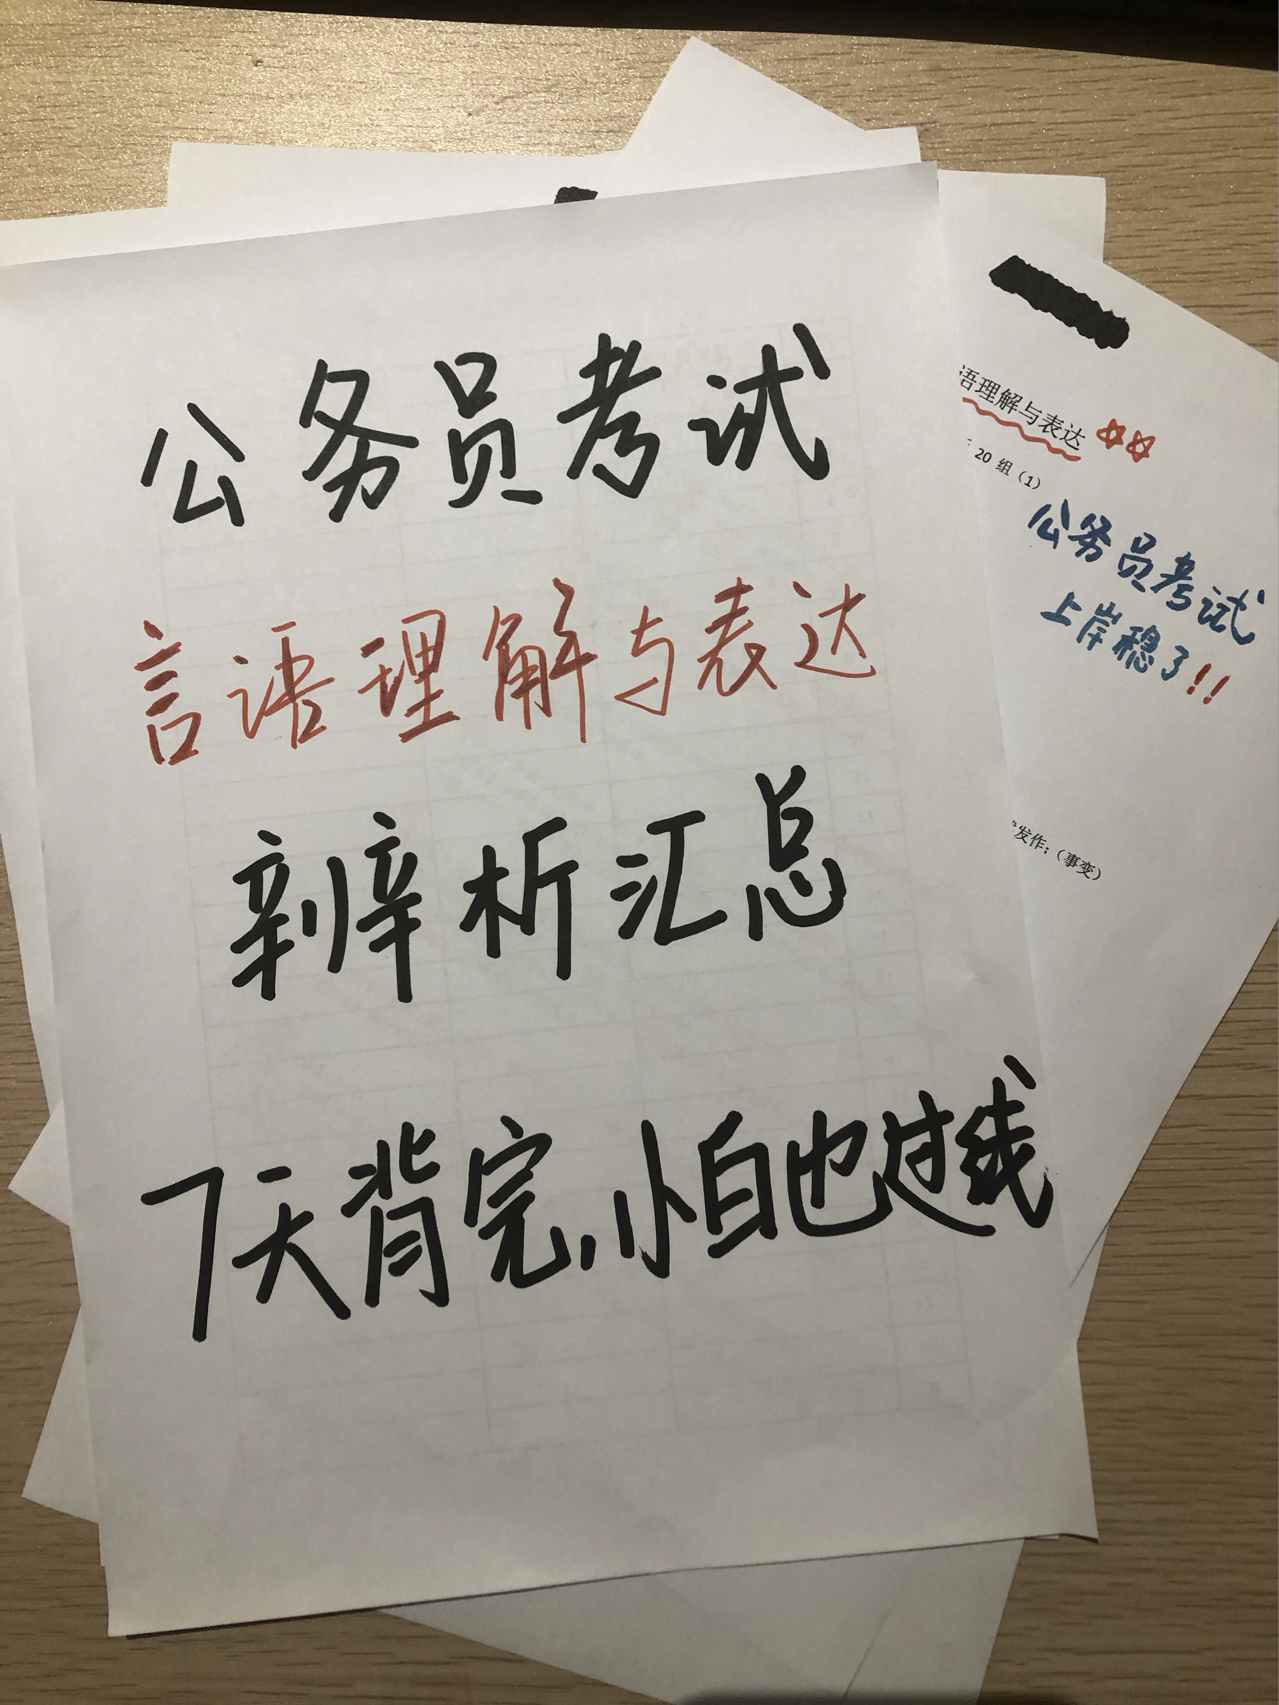 公务员考试
言语理解与表达
辨析汇总
7天背完,小白也过线
语理解与表达
20 组（1）
公务员考试
上岸稳了!!
发作；（事变）